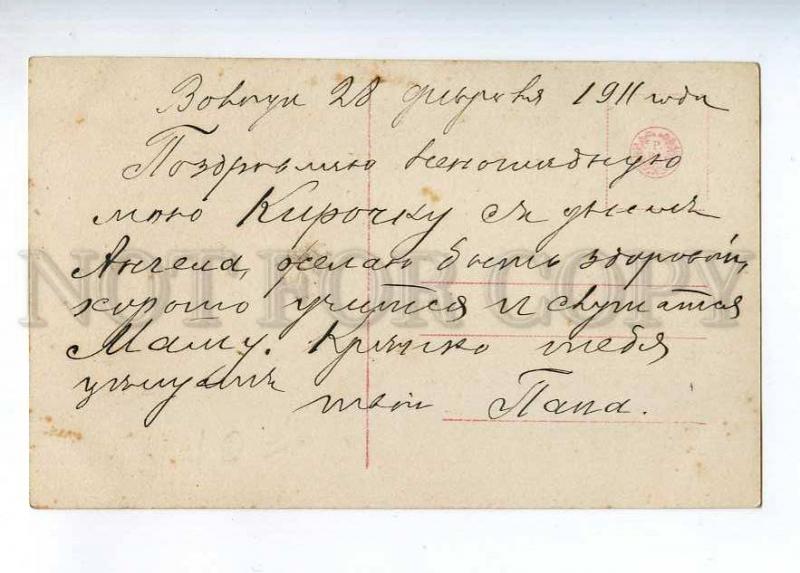 28 февраля 1911 года
Поздравляю ненаглядную
мою Кирочку съ днемъ
Ангела, желаю быть здоровой,
хорошо учится и слушатся
Маму. Крѣпко тебя
цѣлуетъ
твой Папа.
NOT FOR COPY